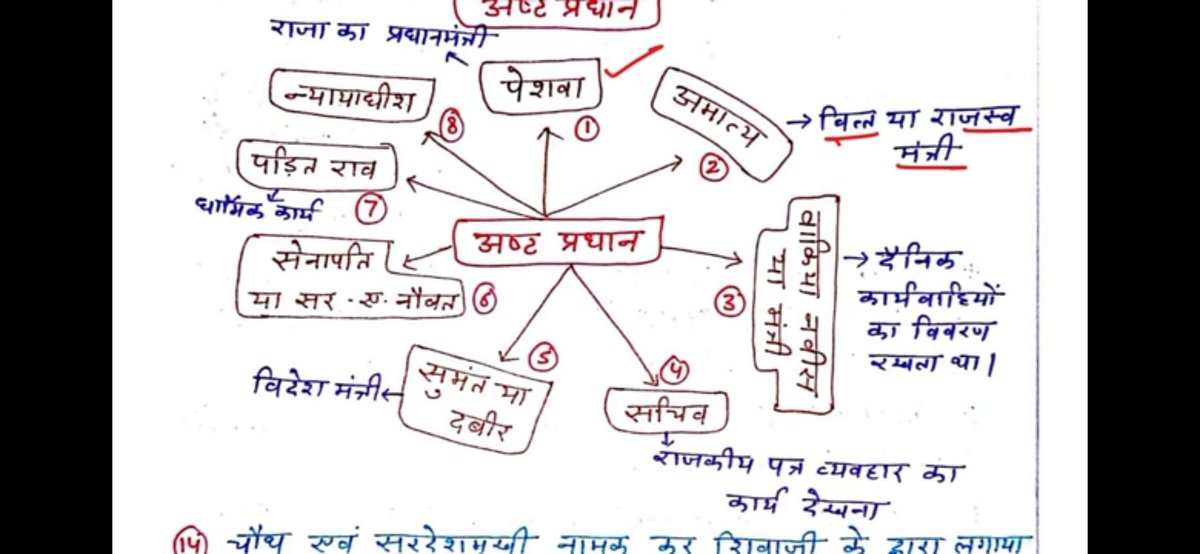 अष्ट प्रधान
राजा का प्रधानमंत्री
पेशवा
①
अमात्य
②
→ वित्त या राजस्व
मंत्री
वाकिया नवीस
या मंत्री
③
→ दैनिक
कार्यवाहियों
का विवरण
रखता था।
सचिव
④
राजकीय पत्र व्यवहार का
कार्य देखना
सुमंत या
दबीर
⑤
विदेश मंत्री
सेनापति
या सर-ए-नौबत
⑥
पंडित राव
⑦
धार्मिक कार्य
न्यायाधीश
⑧
अष्ट प्रधान
⑭ चौथ एवं सरदेशमुखी नामक कर शिवाजी के द्वारा लगाया